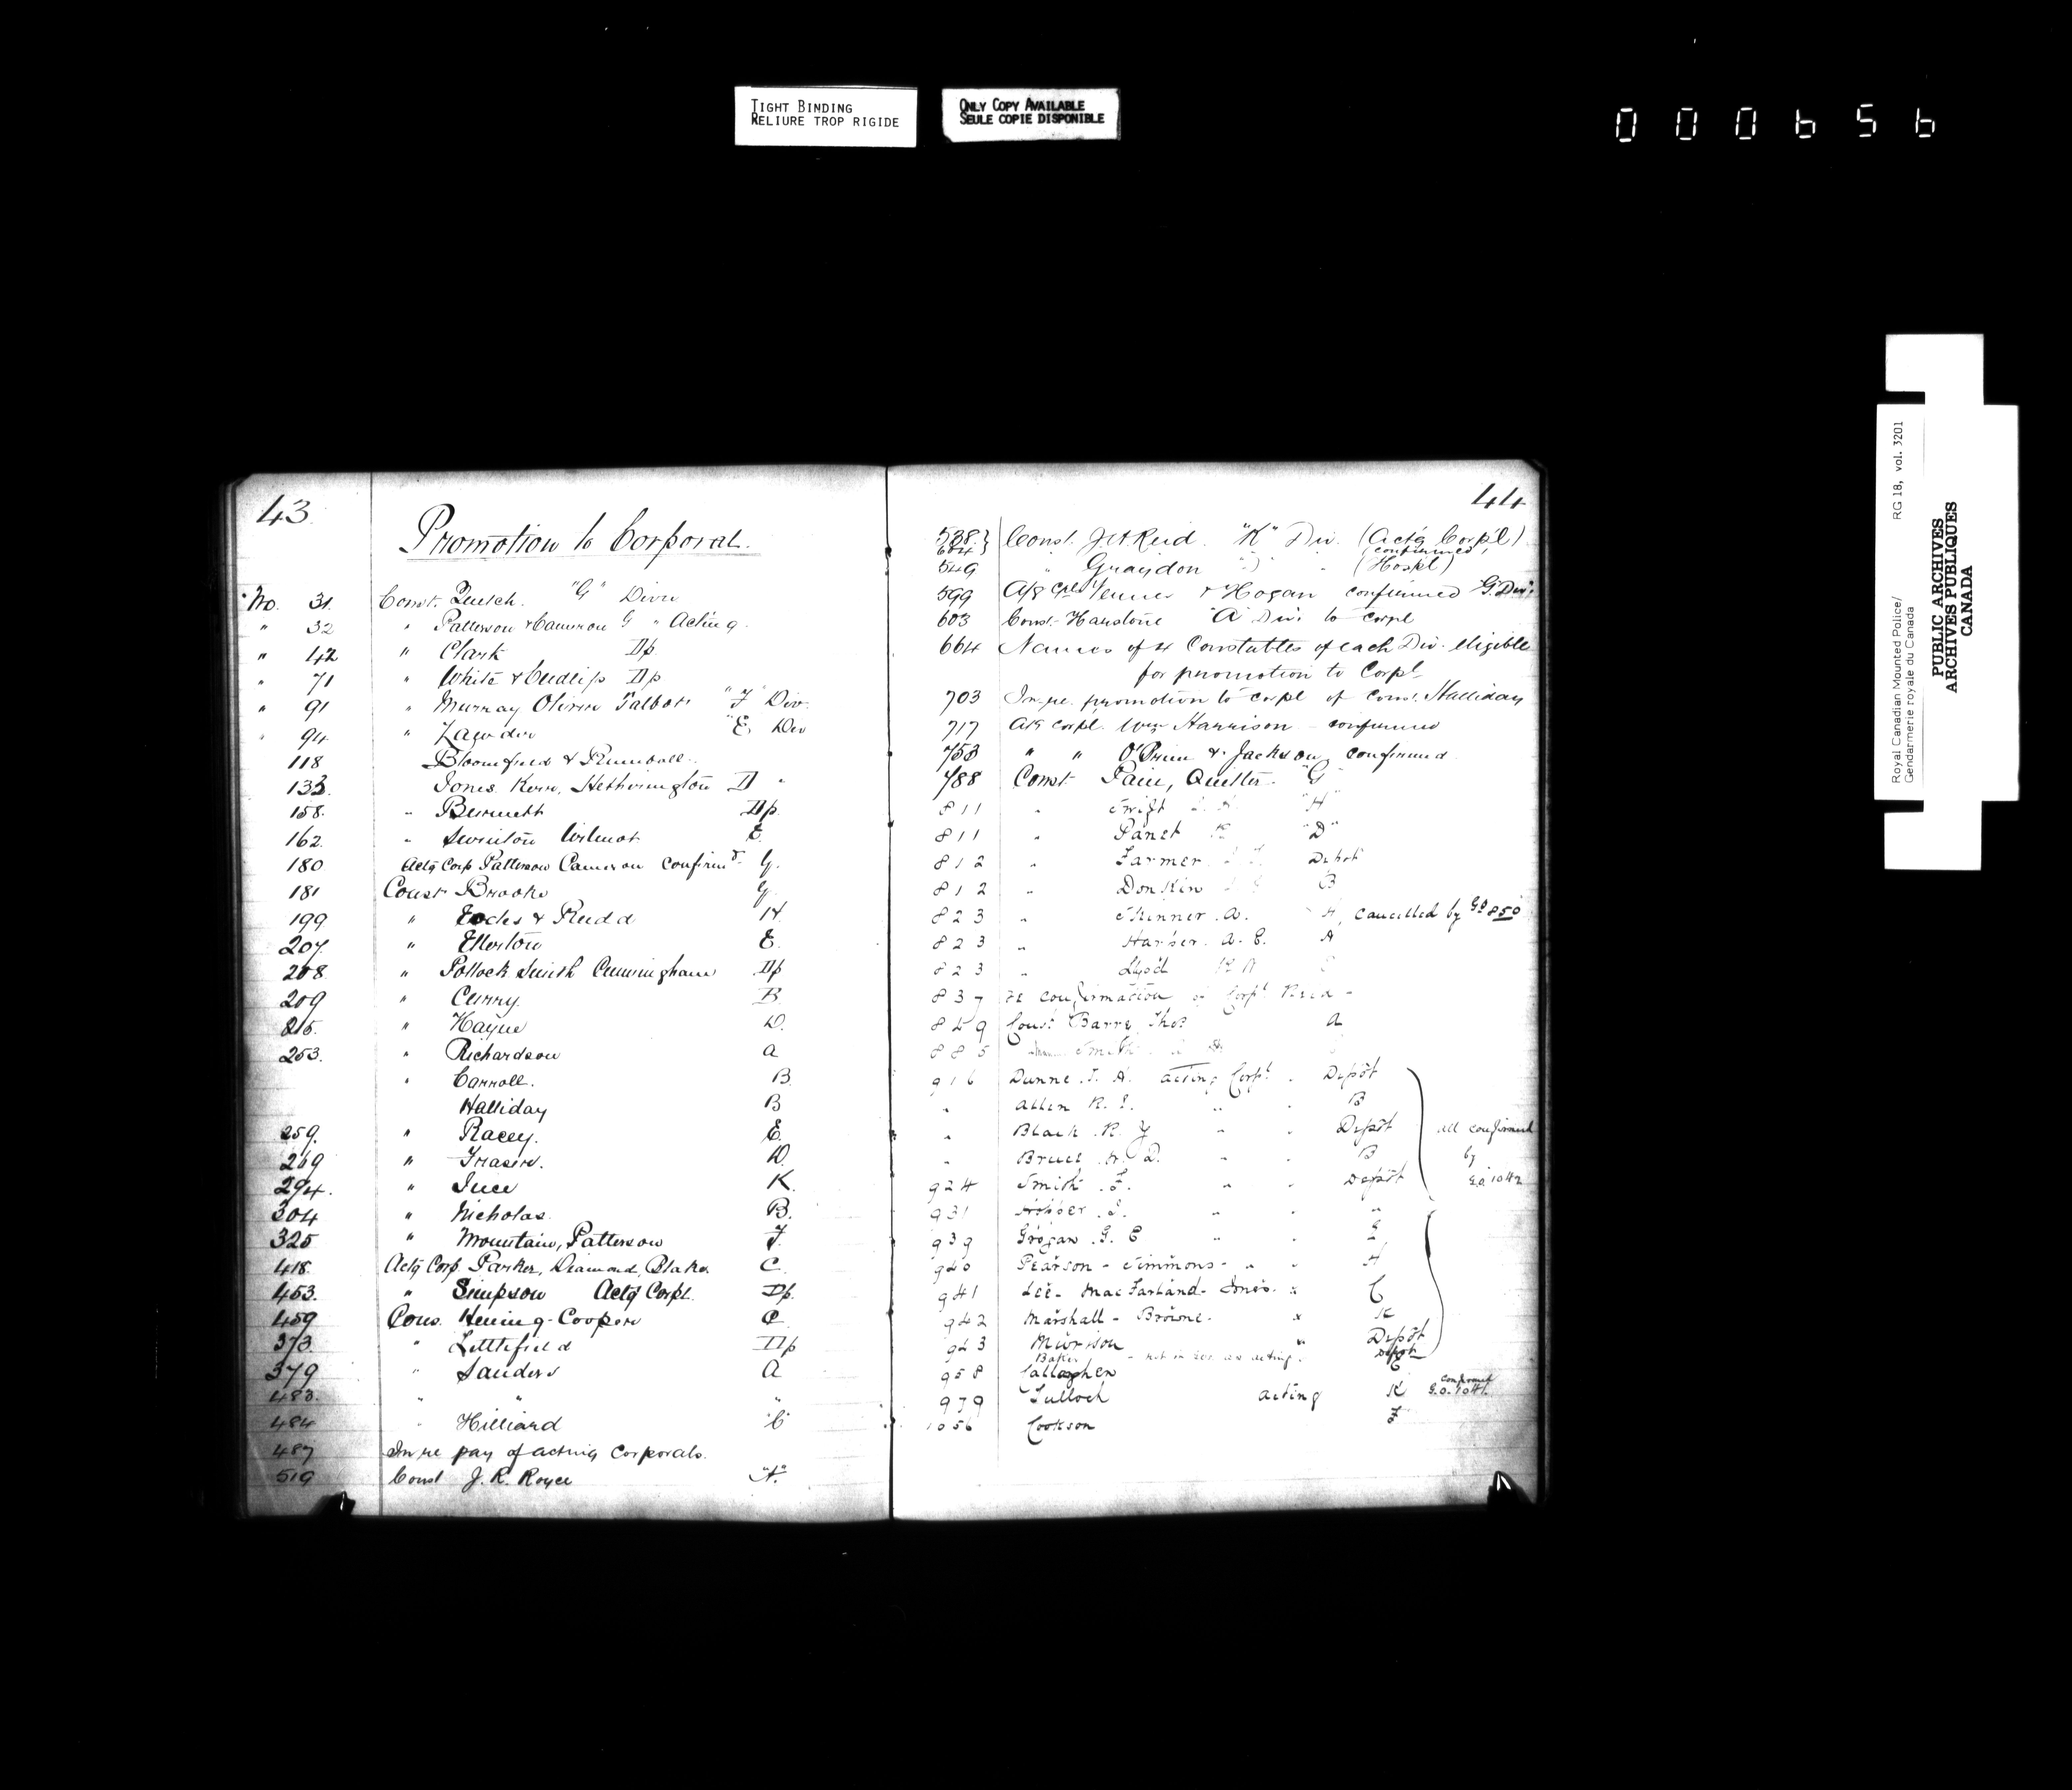 TIGHT BINDING
RELIURE TROP RIGIDE
ONLY COPY AVAILABLE
SEULE COPIE DISPONIBLE
000656
43
Promotion to Corporal.
No. 31. Const. "G" Divn
" 32 " Patterson & Cameron G " Acting
" 42 " Clark Dp
" 71 " White & Cudlip Dp
" 91 " Murray Oliver Talbot "F" Div.
" 94 " Lawder "E" Div
118 Bloomfield & Rumball.
133 Jones. Kerr, Hetherington D "
158. " Burnett Dp
162. " Swinton Wilmot E.
180 Actg Corp Patterson Cameron confirmd. G.
181 Const Brooke G
199 " Eccles & Rudd H.
207 " Ellerton E.
208 " Pollock Smith Cunningham Dp
209 " Curry. B.
215. " Hayne D.
253. " Richardson A
" Carroll. B.
Halliday B
259. " Racey. E.
269 " Fraser. D.
294. " Ince K.
304 " Nicholas. B.
325 " Mountain, Patterson F.
418. Actg Corp. Parker, Diamond, Blake C.
453. " Simpson Actg Corpl. Dp.
459 Cons. Hening-Cooper C.
373. " Littlefield Dp
379 " Sanders A
483. " " "
484 " Hilliard "C"
487 In re pay of acting Corporals.
519 Const J. R. Royce "A."
44
538. } Const. J.A. Reid. "K" Div. (Actg Corp'l)
604 } (confirmed)
549 " Graydon " " (Hospl)
599 A/g Cpl Venner & Hogan confirmed "G" Div.
603 Const. Hanstone "A" Div. to corpl
664 Names of 4 Constables of each Div. eligible
for promotion to Corpl
703 In re. promotion to corpl of Const. Halliday
717 Actg corpl. Wm Harrison - confirmed
753 " " O'Brien & Jackson, confirmed
788 Const. Pain, Quilter "G"
811 " Swift "H"
811 " Panet "D"
812 " Farmer Depot
812 " Donkin B
823 " Skinner. A. cancelled by GO 850
823 " Harper. A. E. A
823 " Lloyd
837 re confirmation of Corpl Reid -
849 Const Barre, Thos A
885 Smith
916 Dunne. T. A. acting Corpl. Depôt
" Allen R. " " B
" Black. R. " " Depôt all confirmed
" Bruce. H. D. " " B by
924 Smith. F. " " Depôt G.O. 1042
931 Hopper. " " "
939 Grogan. G. E " " E
940 Pearson - Timmons - " " A
941 Lee - MacFarland - Jones. " C
942 Marshall - Browne. " K
943 Murison " Depôt
Baker - not in acting. Depôt
958 Callaghen C
979 Tulloch acting K confirmed G.O. 1041.
1056 Cookson F
Royal Canadian Mounted Police/ RG 18, vol. 3201
Gendarmerie royale du Canada
PUBLIC ARCHIVES
ARCHIVES PUBLIQUES
CANADA